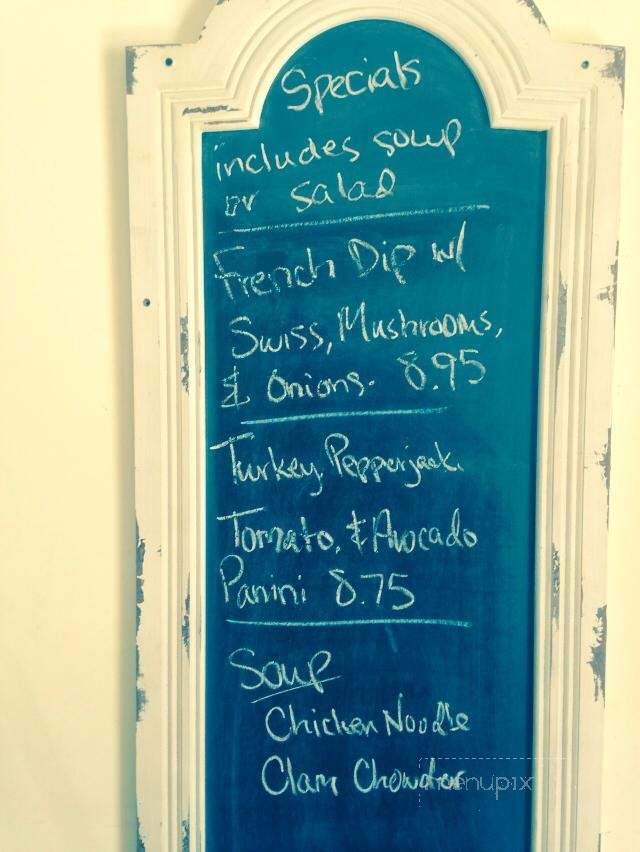 Specials
includes soup
or salad
French Dip w/
Swiss, Mushrooms,
& Onions. 8.95
Turkey, Pepperjack,
Tomato, & Avocado
Panini 8.75
Soup
Chicken Noodle
Clam Chowder
menupix